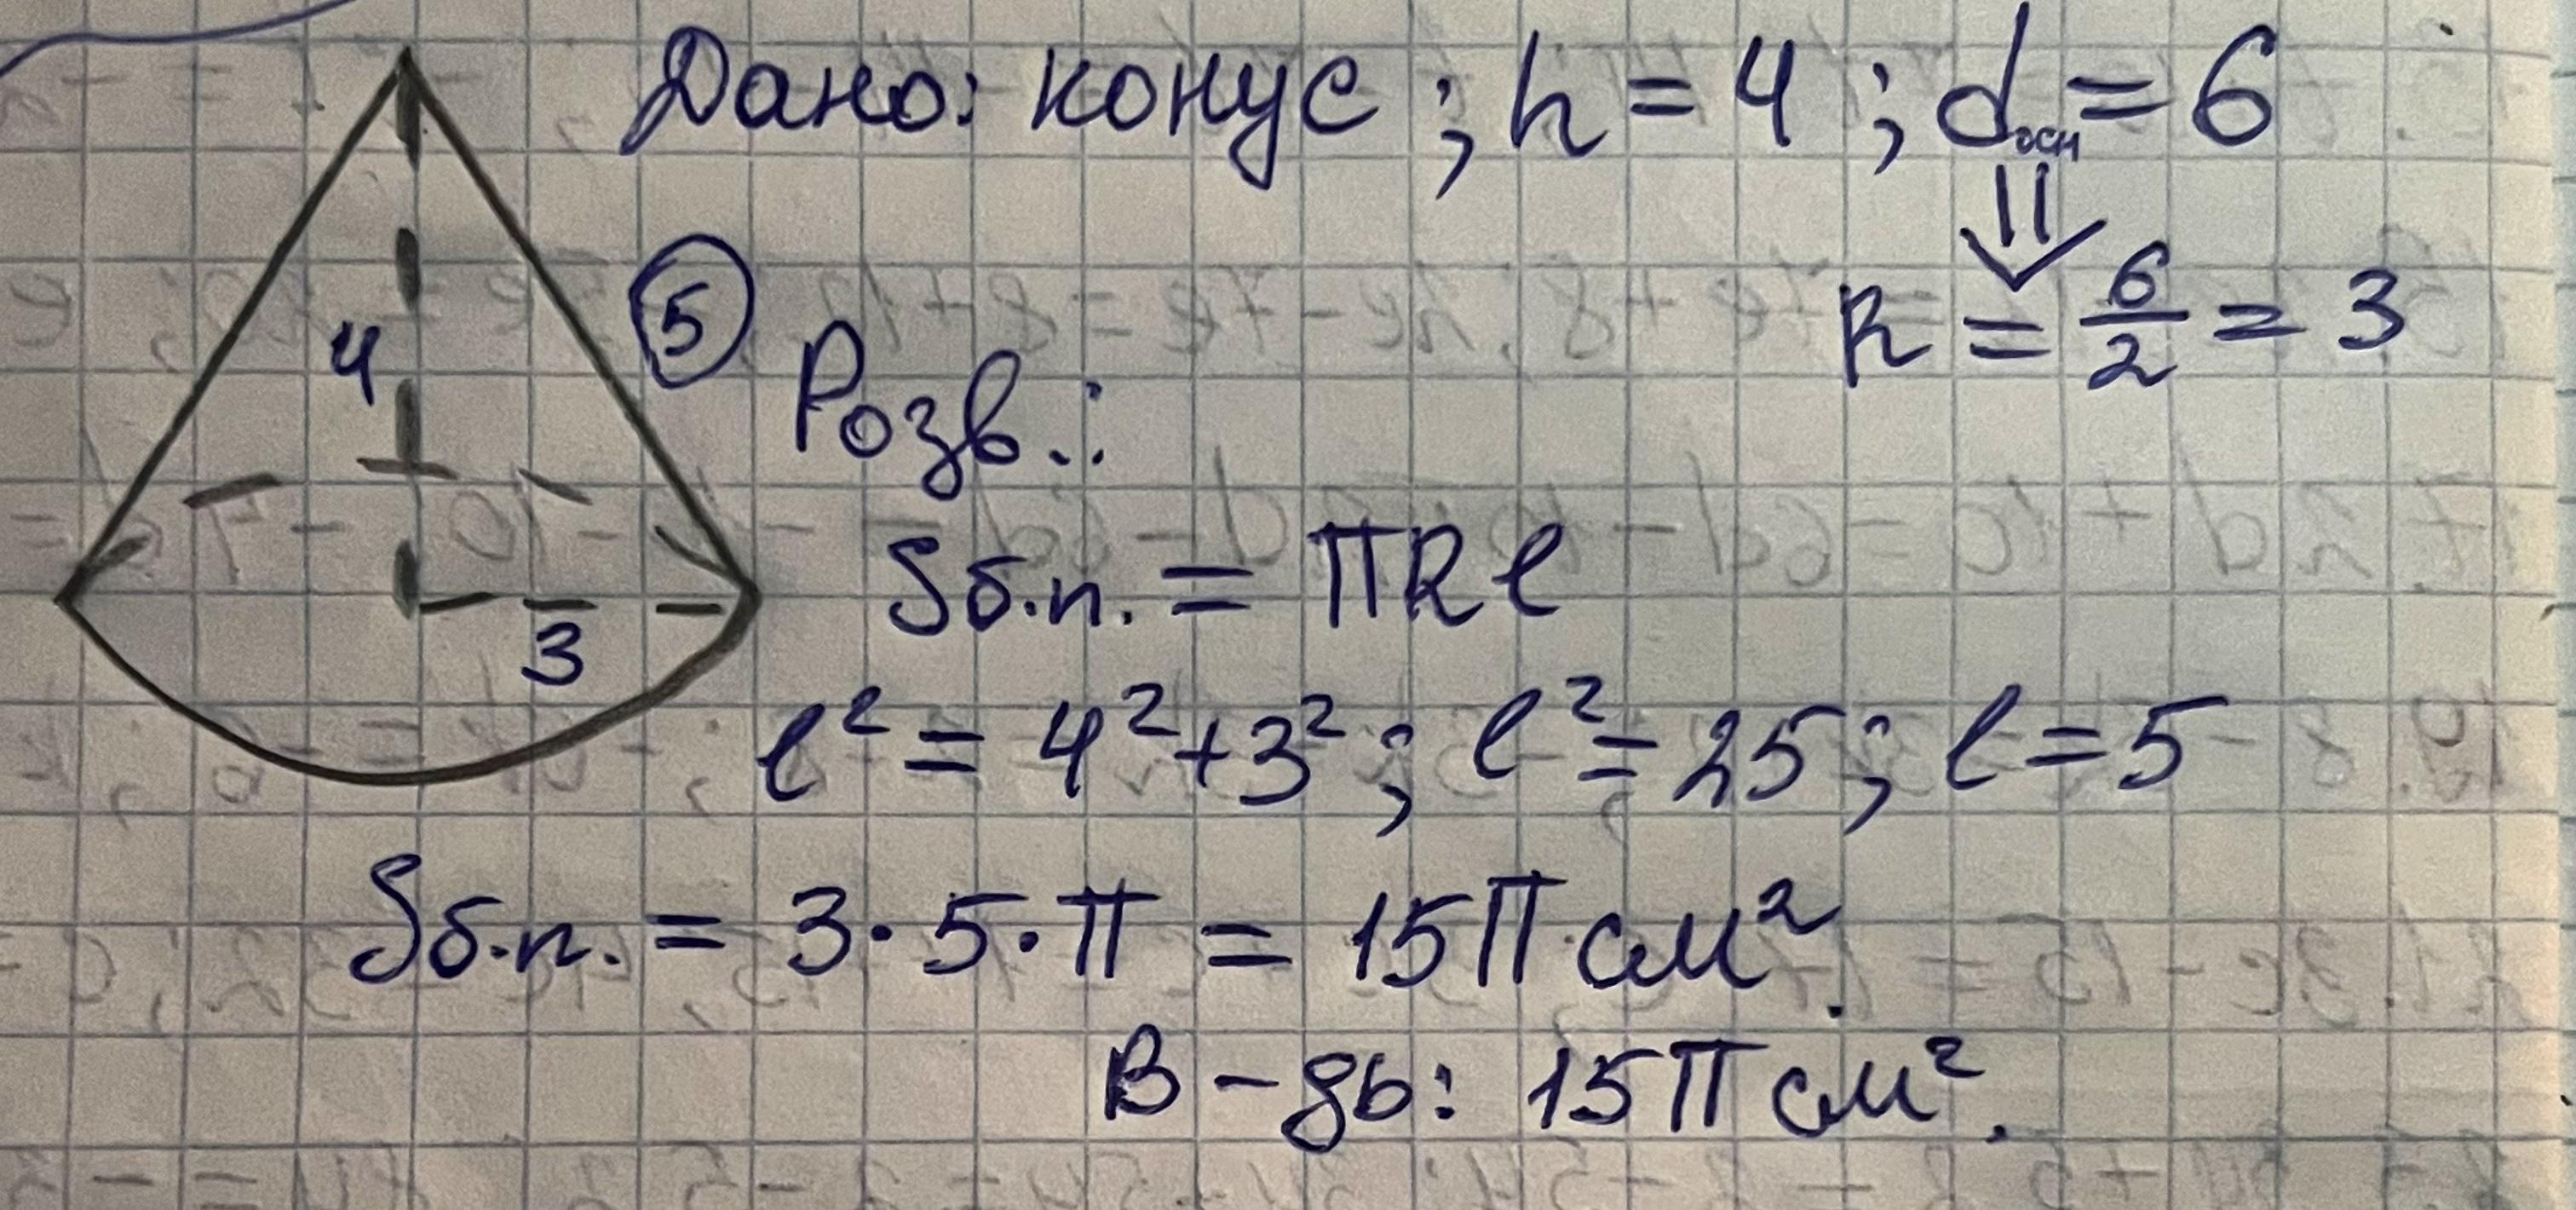 Дано: конус ; h = 4 ; dосн = 6
⇓
R = 6/2 = 3
4
5
Розв.:
Sб.п. = ПRl
3
l² = 4²+3² ; l² = 25 ; l = 5
Sб.п. = 3·5·П = 15П см².
В-дь: 15П см².